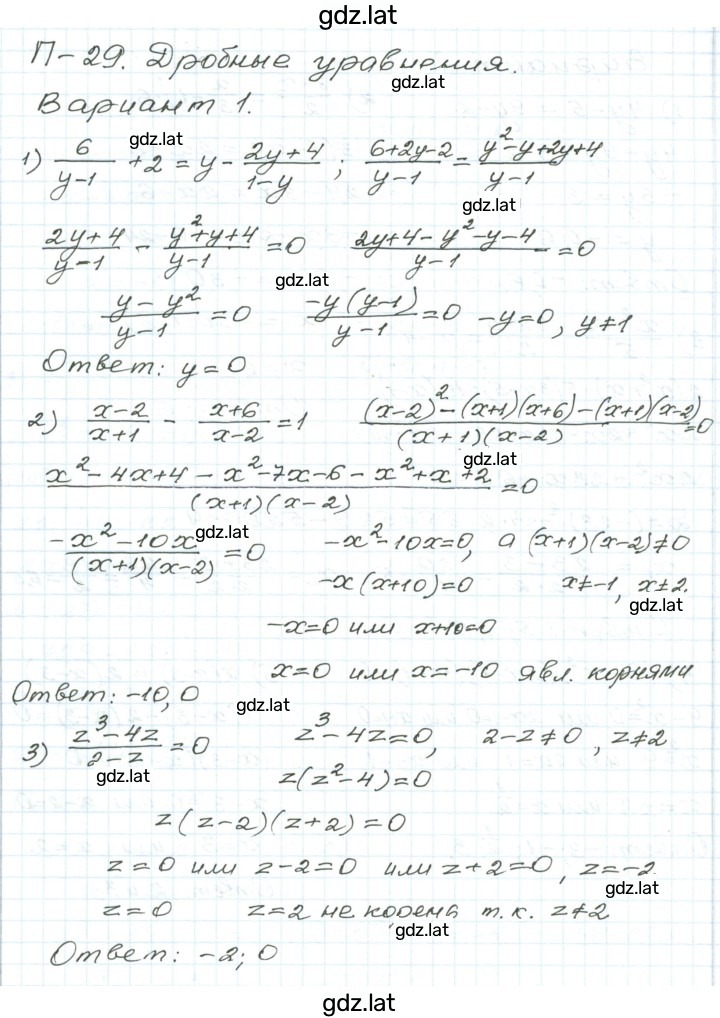 gdz.lat
П-29. Дробные уравнения.
gdz.lat
Вариант 1.
gdz.lat
1) 6/(y-1) + 2 = y - (2y+4)/(1-y) ; (6+2y-2)/(y-1) = (y²-y+2y+4)/(y-1)
gdz.lat
(2y+4)/(y-1) - (y²+y+4)/(y-1) = 0 (2y+4-y²-y-4)/(y-1) = 0
gdz.lat
(y-y²)/(y-1) = 0 -y(y-1)/(y-1) = 0 -y=0, y≠1
Ответ: y=0
2) (x-2)/(x+1) - (x+6)/(x-2) = 1 ((x-2)²-(x+1)(x+6)-(x+1)(x-2))/((x+1)(x-2)) = 0
gdz.lat
(x²-4x+4-x²-7x-6-x²+x+2)/((x+1)(x-2)) = 0
gdz.lat
(-x²-10x)/((x+1)(x-2)) = 0 -x²-10x=0, а (x+1)(x-2)≠0
-x(x+10)=0 x≠-1, x≠2.
gdz.lat
-x=0 или x+10=0
x=0 или x=-10 явл. корнями
Ответ: -10, 0
gdz.lat
3) (z³-4z)/(2-z) = 0 z³-4z=0, 2-z≠0, z≠2
gdz.lat
z(z²-4)=0
z(z-2)(z+2)=0
z=0 или z-2=0 или z+2=0, z=-2
gdz.lat
z=0 z=2 не корень т.к. z≠2
gdz.lat
Ответ: -2; 0
gdz.lat